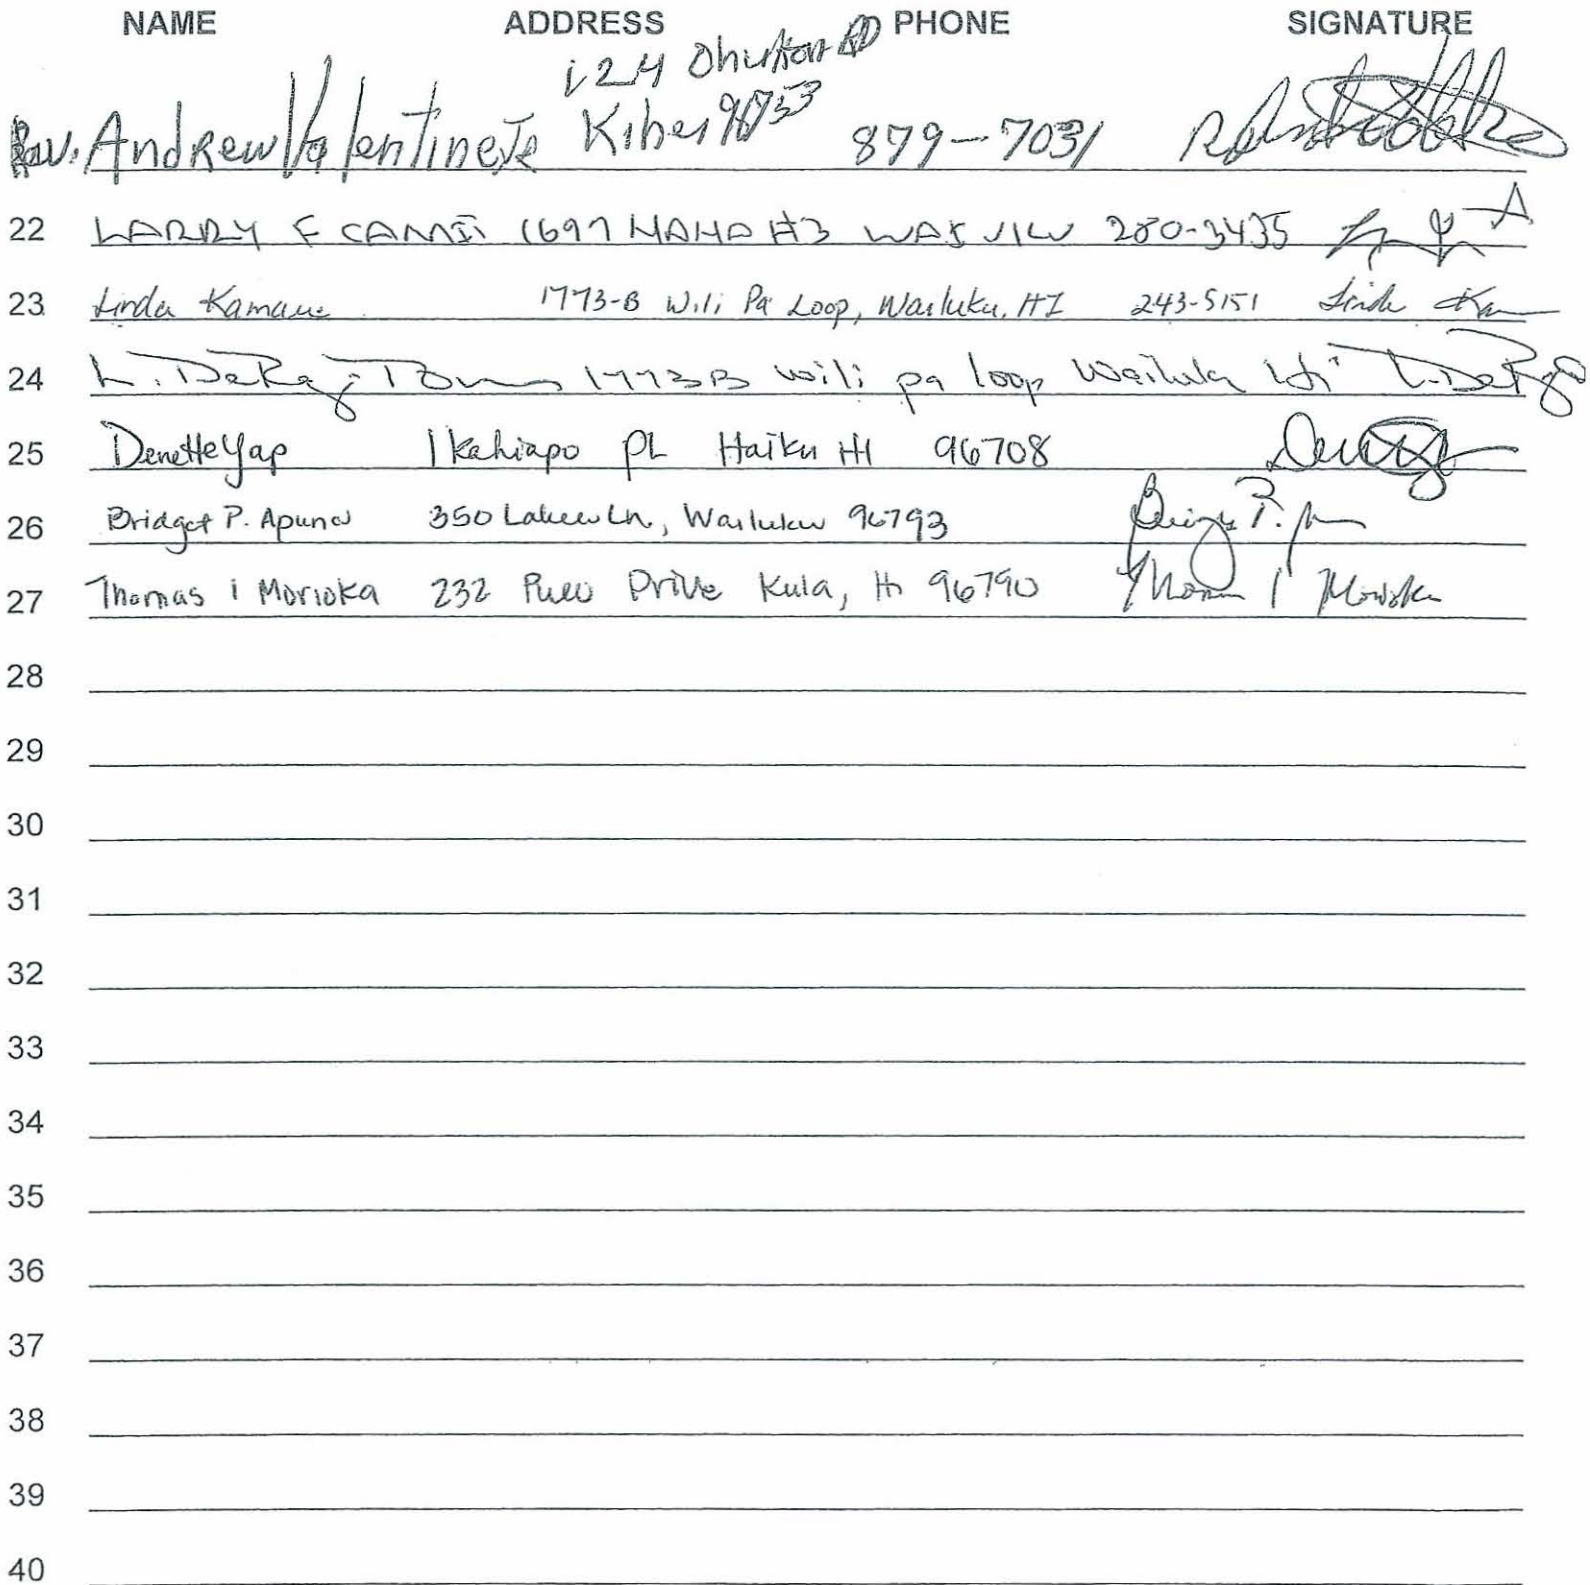 NAME ADDRESS PHONE SIGNATURE
Rev. Andrew Valentine Kihei 96753 879-7031
22 LARRY F 280-3435
23 Linda Kamaue 1773-B Wili Pa Loop, Wailuku, HI 243-5151
24 L. 1773B wili pa loop Wailuku Hi
25 Denette Yap 1 Kahiapo PL Haiku HI 96708
26 Bridget P. Apuna 350 Ln., Wailuku 96793
27 Thomas I Morioka 232 Pueo Drive Kula, Hi 96790 Thomas I Morioka
28
29
30
31
32
33
34
35
36
37
38
39
40